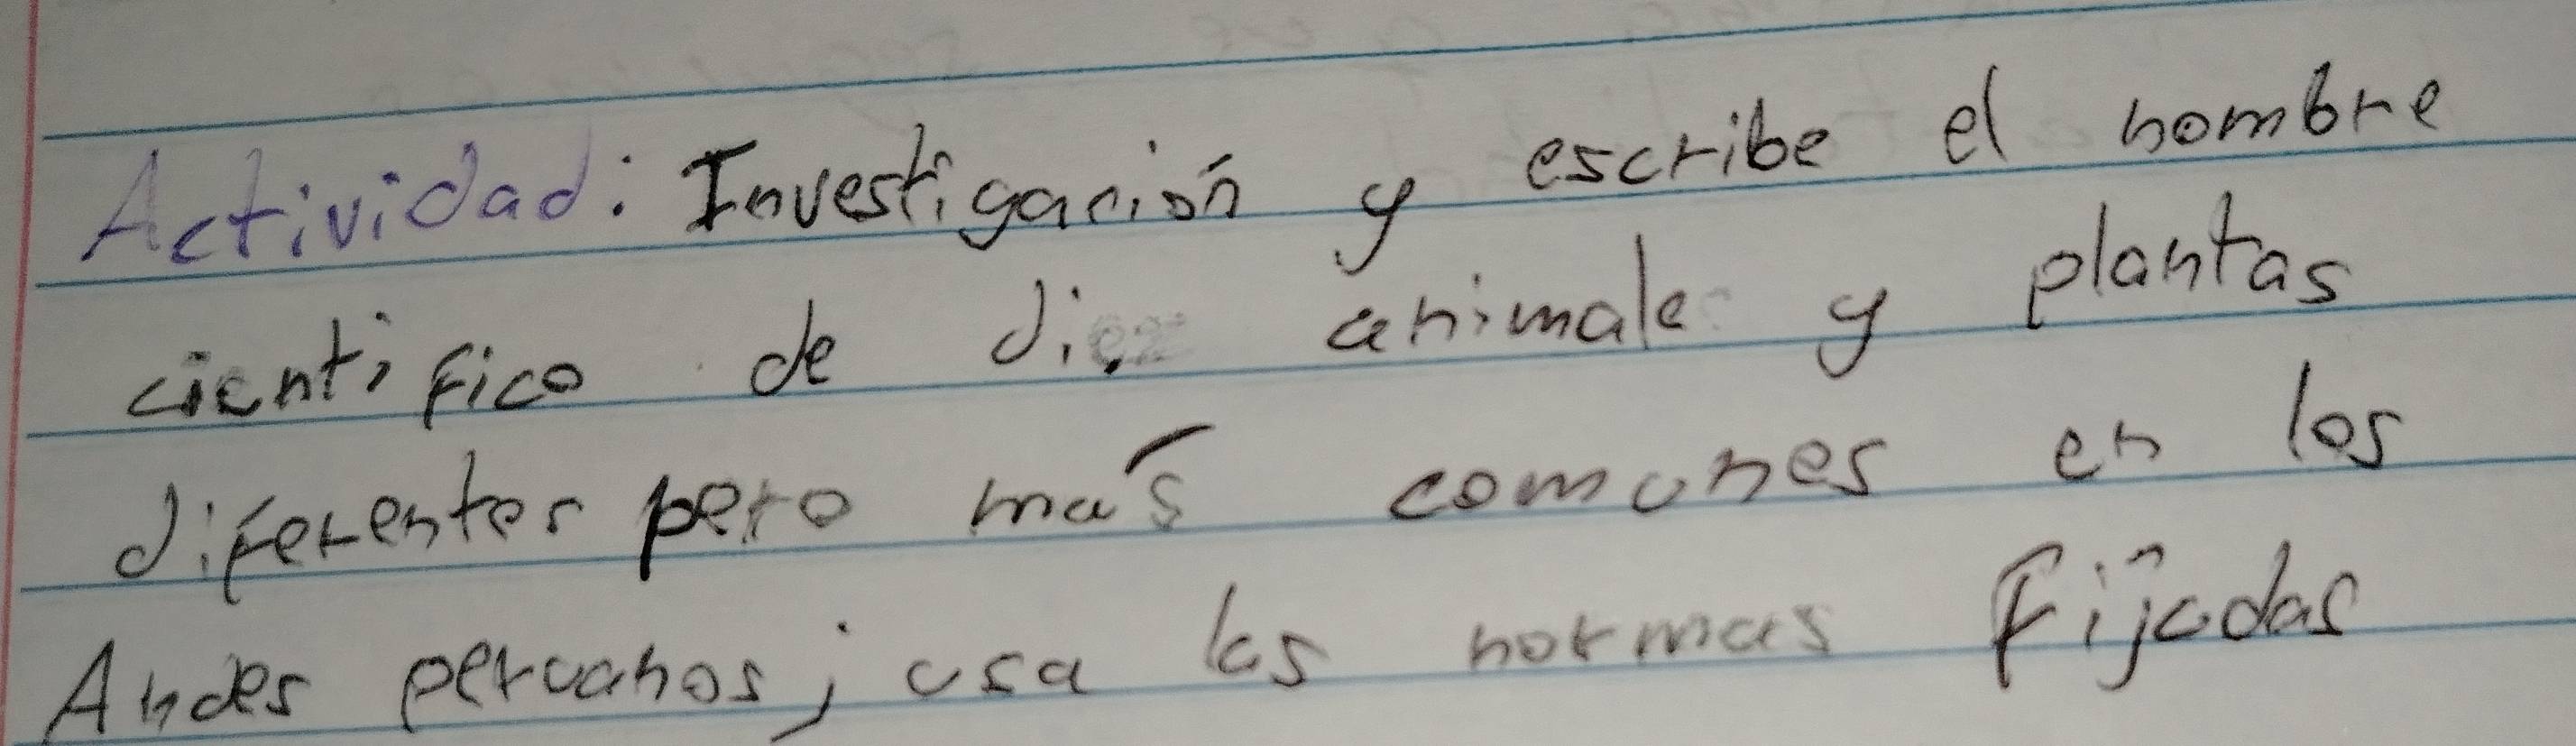 Actividad: Investigación y escribe el nombre
cientifico de diez animales y plantas
diferentes pero más comunes en los
Andes peruanos; usa las normas fijadas